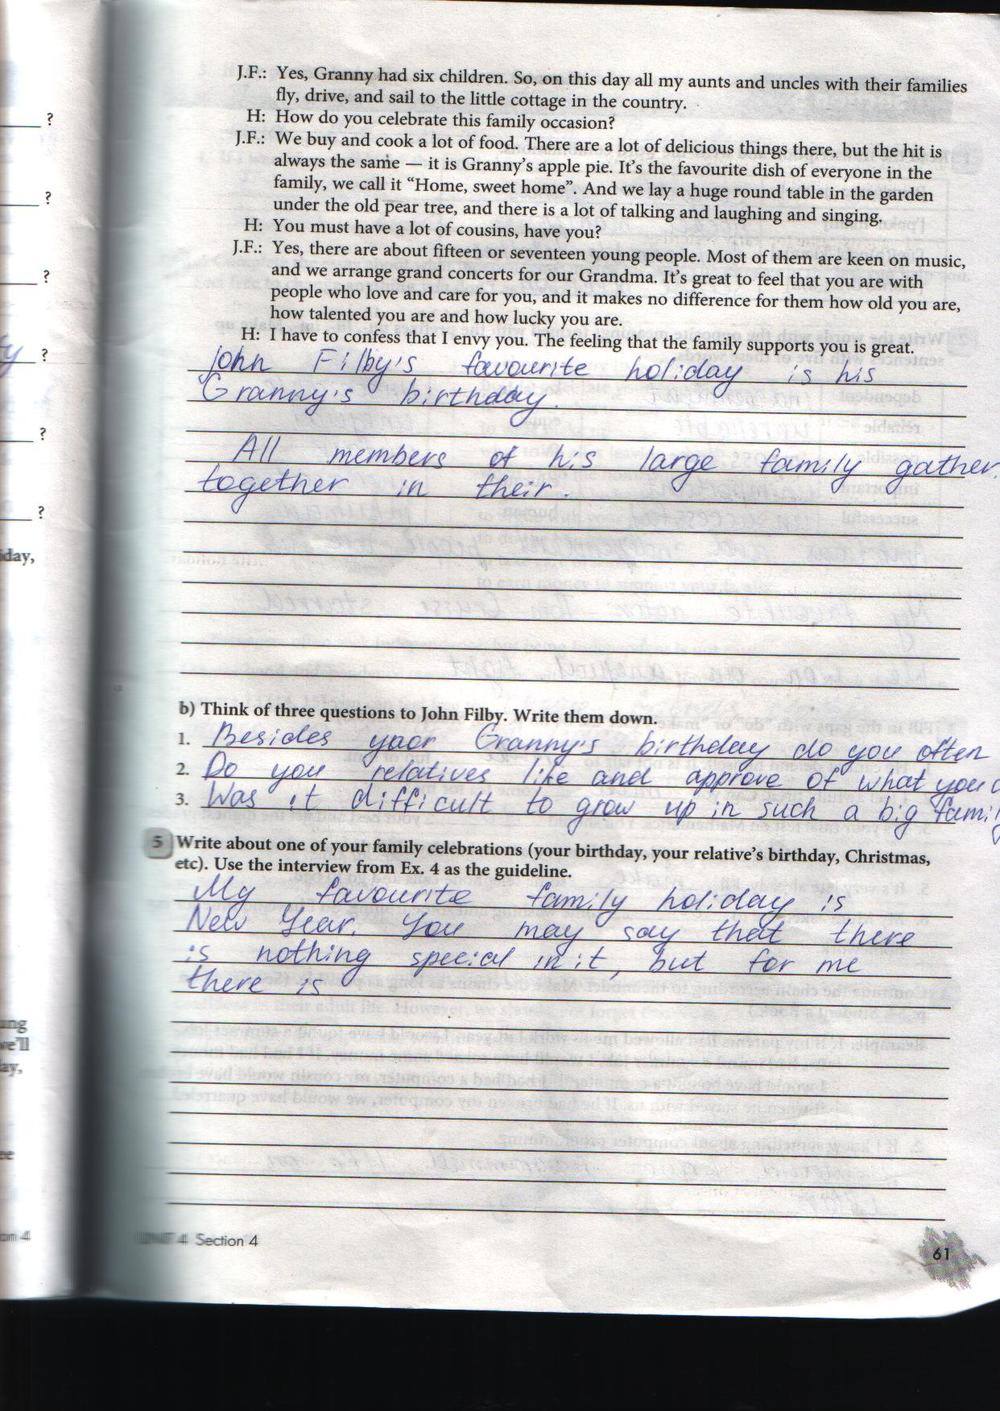 J.F.: Yes, Granny had six children. So, on this day all my aunts and uncles with their families
fly, drive, and sail to the little cottage in the country.
H: How do you celebrate this family occasion?
J.F.: We buy and cook a lot of food. There are a lot of delicious things there, but the hit is
always the same — it is Granny's apple pie. It's the favourite dish of everyone in the
family, we call it "Home, sweet home". And we lay a huge round table in the garden
under the old pear tree, and there is a lot of talking and laughing and singing.
H: You must have a lot of cousins, have you?
J.F.: Yes, there are about fifteen or seventeen young people. Most of them are keen on music,
and we arrange grand concerts for our Grandma. It's great to feel that you are with
people who love and care for you, and it makes no difference for them how old you are,
how talented you are and how lucky you are.
H: I have to confess that I envy you. The feeling that the family supports you is great.
John Filby's favourite holiday is his
Granny's birthday.
All members of his large family gather
together in their.
b) Think of three questions to John Filby. Write them down.
1. Besides yaor Granny's birthday do you often
2. Do you relatives like and approve of what you
3. Was it difficult to grow up in such a big fami
5 Write about one of your family celebrations (your birthday, your relative's birthday, Christmas,
etc). Use the interview from Ex. 4 as the guideline.
My favourite family holiday is
New Year. You may say that there
is nothing special in it, but for me
there is
UNIT 4 Section 4
61